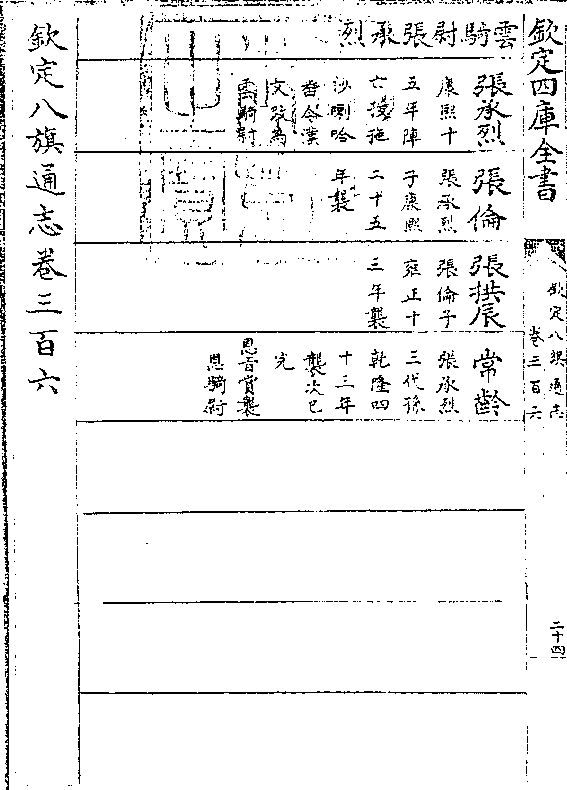 欽定四庫全書
欽定八旗通志
卷三百六
二十四
雲騎尉張承烈
張承烈
康熙十
五年陣
亡授拖
沙喇哈
番今漢
文改為
雲騎尉
張倫
張承烈
子康熙
二十五
年襲
張拱辰
張倫子
雍正十
三年襲
常齡
張承烈
三代孫
乾隆四
十三年
襲次已
完
恩旨賞襲
恩騎尉
欽定八旗通志卷三百六